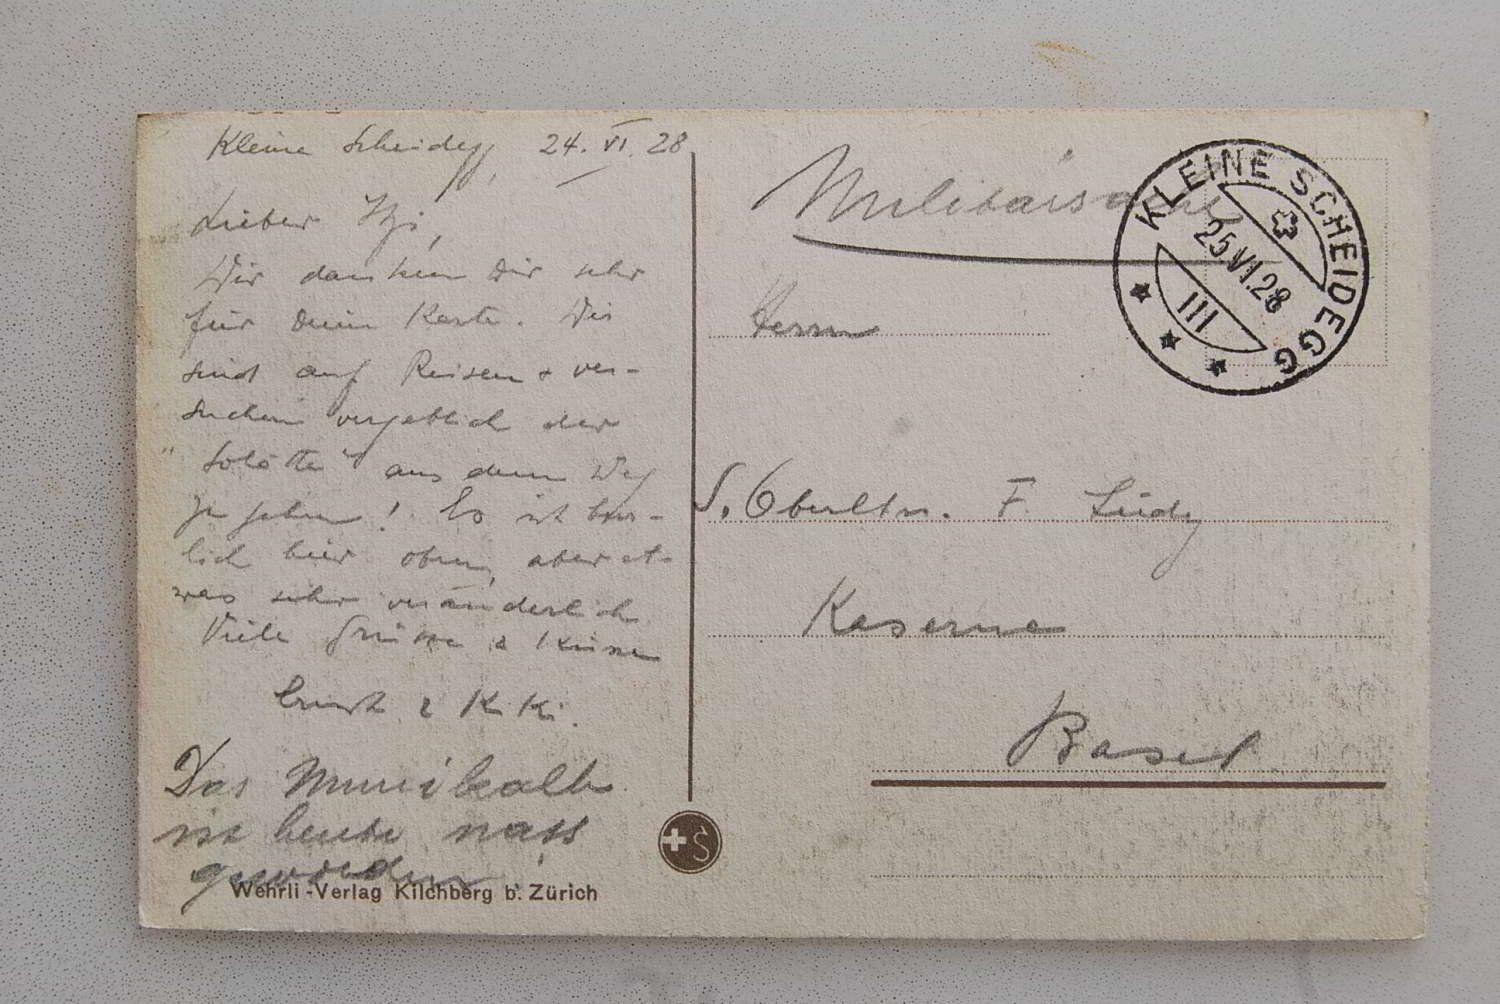 Kleine Scheidegg, 24. VI. 28
Lieber
Wir danken Dir sehr
für Deine Karte. Wir
sind auf Reisen + ver-
suchen vergeblich der
" " aus dem Weg
zu gehen! Es ist herr-
lich hier oben, aber et-
was sehr veränderlich
Viele Grüsse & Küsse
Ernst & Kiki.
Das Munikalb
ist heute nass
geworden
Wehrli-Verlag Kilchberg b. Zürich
Militärsache
KLEINE SCHEIDEGG
25.VI.28
III
Herrn
S. Oberltn. F. Lüdy
Kaserne
Basel
S